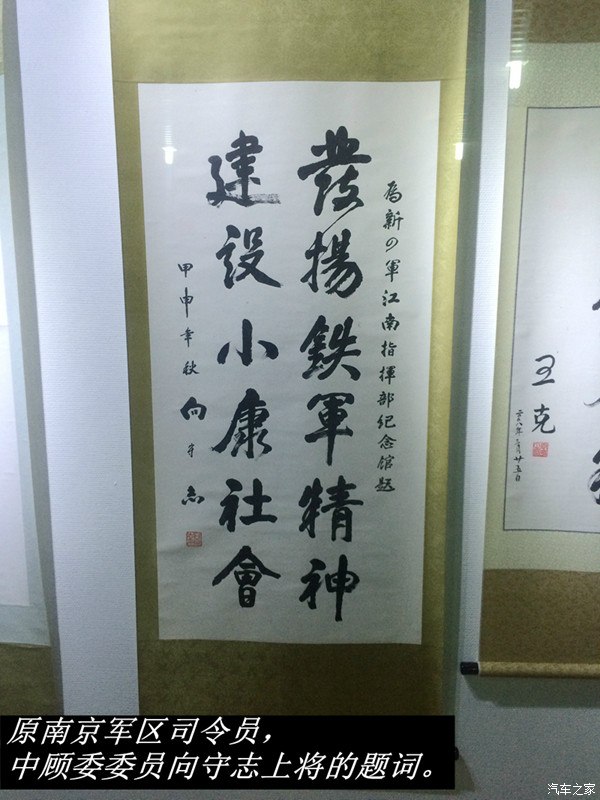 为新四軍江南指揮部纪念馆题
發揚鉄軍精神
建设小康社會
甲申年秋 向守志
王克
二〇〇八年二月廿五日
原南京军区司令员，
中顾委委员向守志上将的题词。
汽车之家